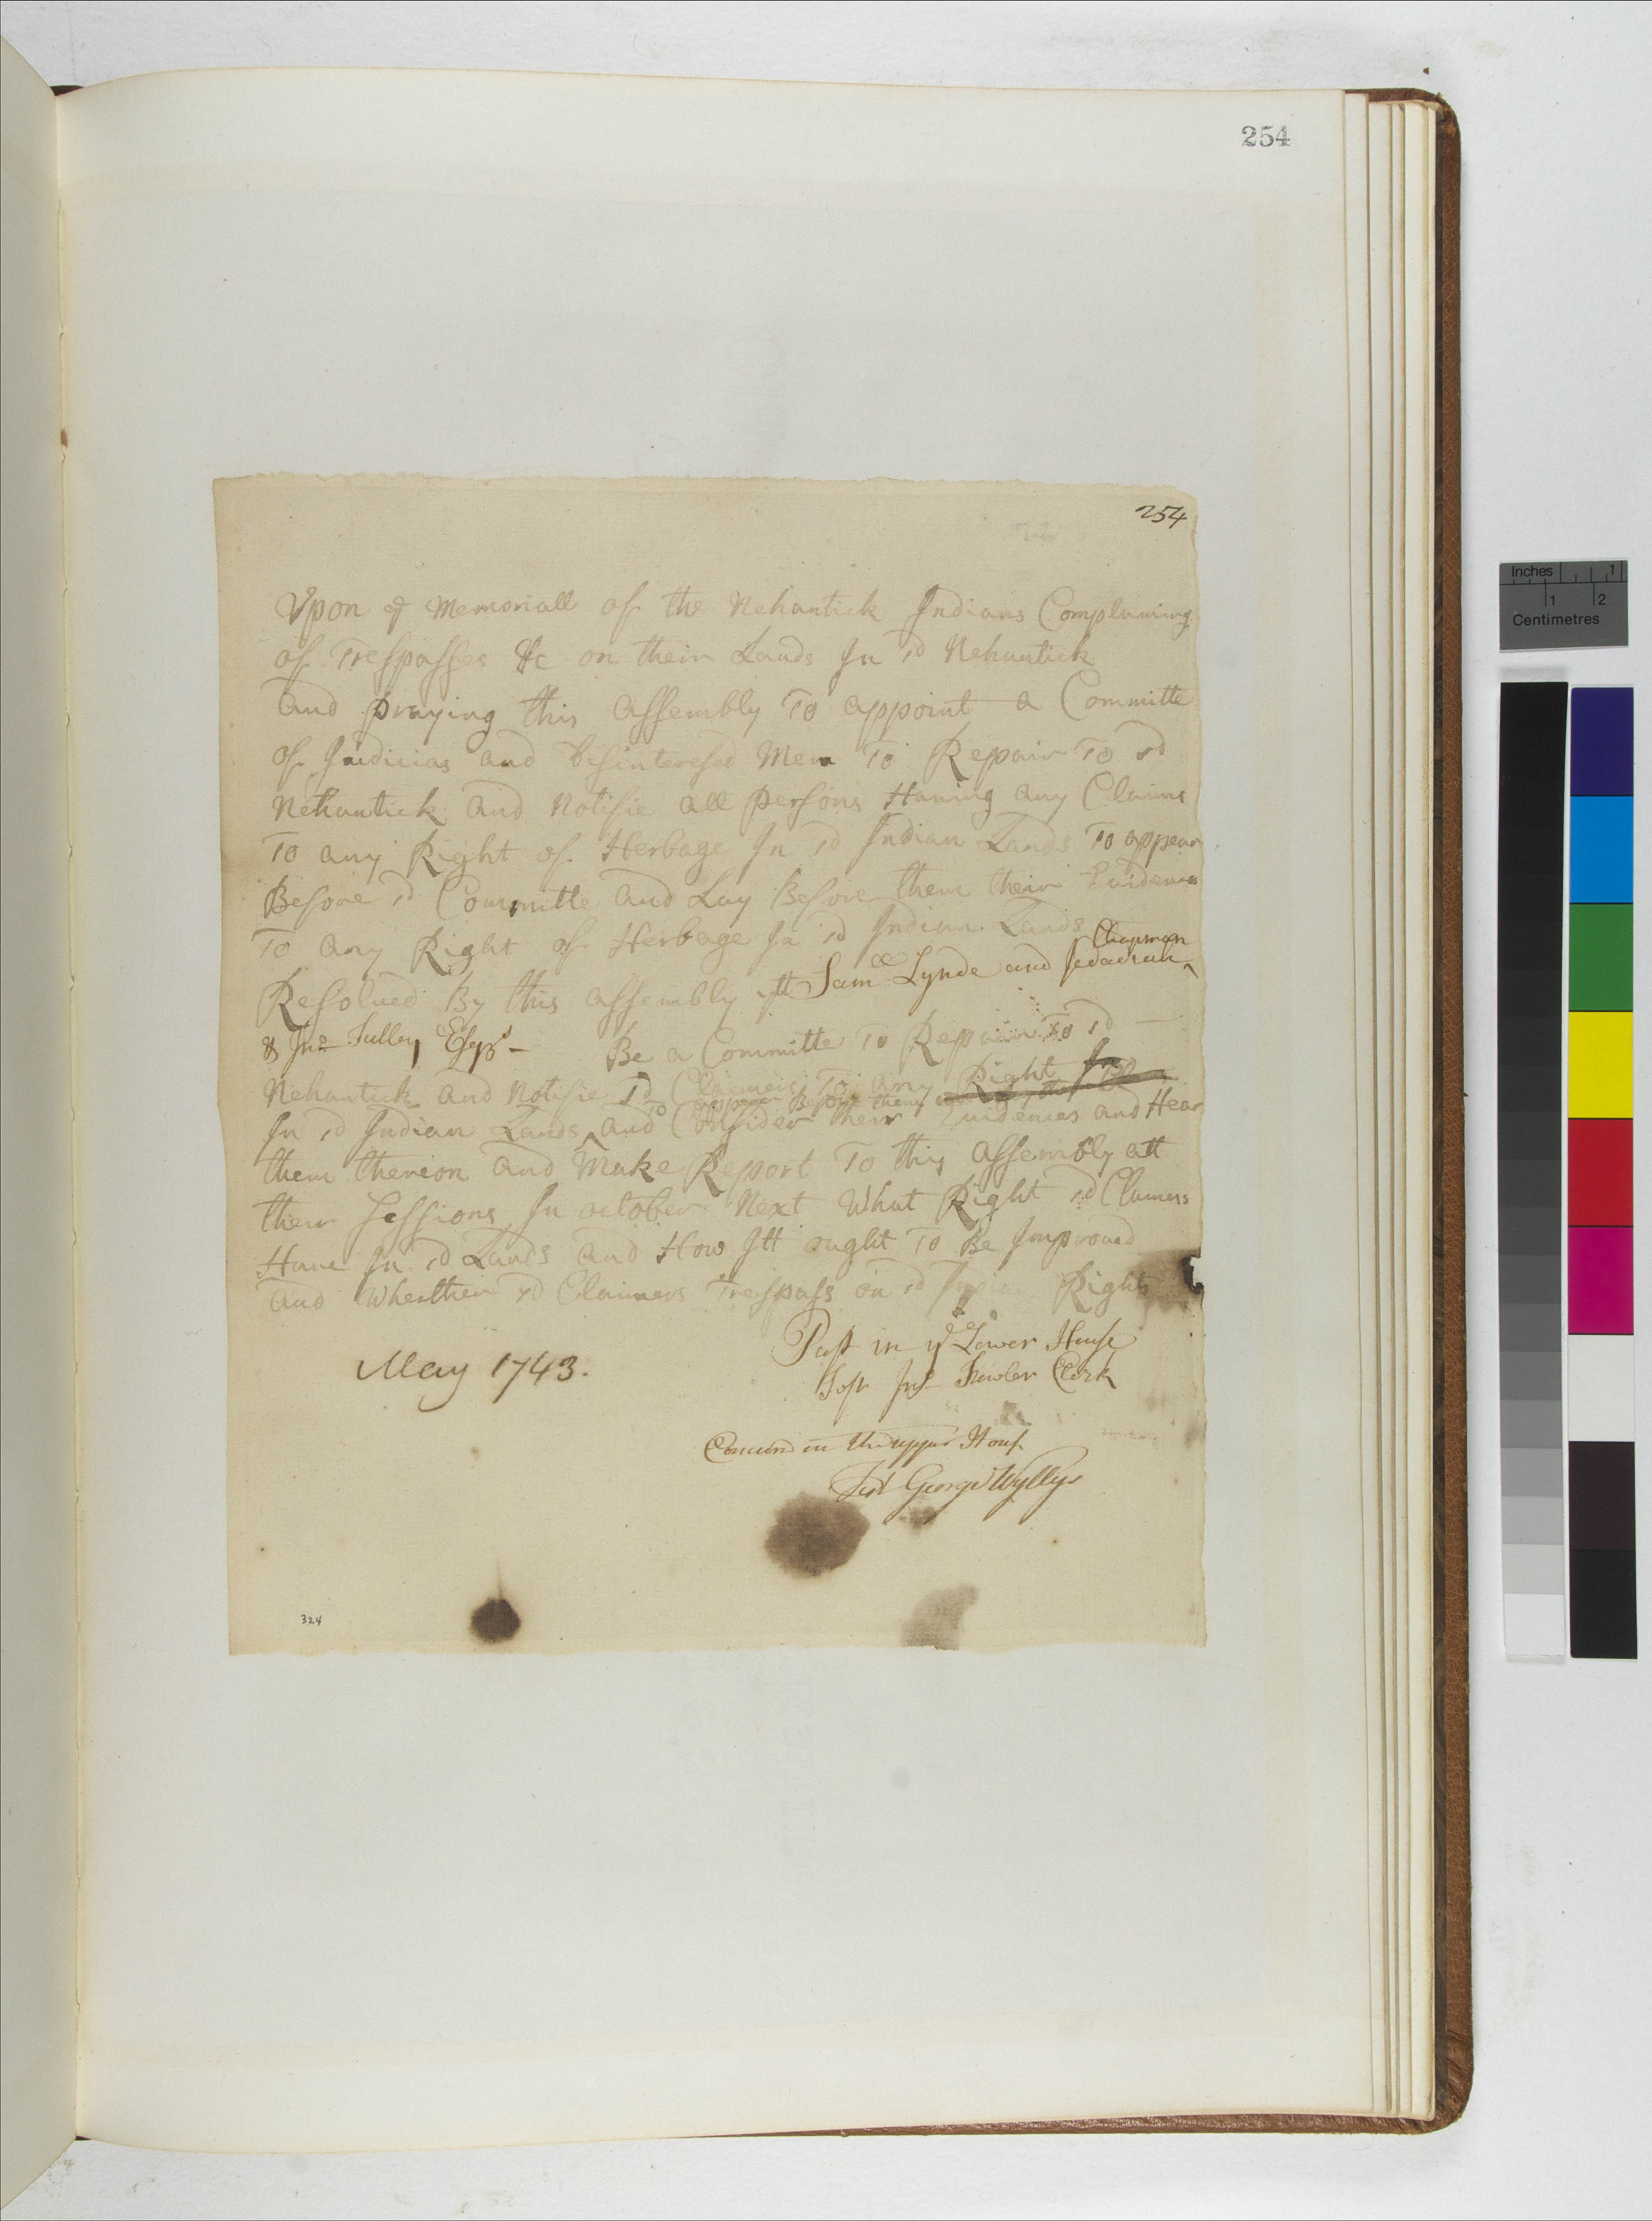 254
254
Vpon ye Memoriall of the Nehantick Indians Complaining
of Trespasses &c on their Lands In sd Nehantick
and praying this assembly To appoint a Committe
of Judicias and disinteresed Men To Repair To sd
Nehantick and Notifie all persons Haming any Claims
To any Right of Herbage In sd Indian Lands To appear
Before sd Committe and Lay Before them their Evidence
To any Right of Herbage In sd Indian Lands
Resolued By this assembly yt Samll Lynde and Jedadiah ^ Chapman
& Jno Tulley Esqrs – Be a Committe To Repair To sd
Nehantick and Notifie sd Claimers To any Right
In sd Indian Lands ^ To appear Before them and Consider their Euidences and Hear
them thereon and Make Report To this assembly att
their Sessions In october Next What Right sd Claimers
Haue In sd Lands and How Itt ought To Be Improued
and Wherther sd Claimers Trespass on sd Indian Rights
Past in ye Lower House
May 1743.
Test Jno Fowler Clerk
Concurd in the upper House
Test George Wyllys
324
Inches 1
1 2
Centimetres